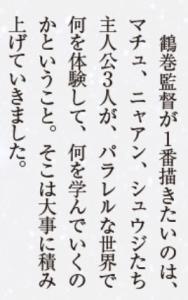 鶴巻監督が1番描きたいのは、
マチュ、ニャアン、シュウジたち
主人公3人が、パラレルな世界で
何を体験して、何を学んでいくの
かということ。そこは大事に積み
上げていきました。